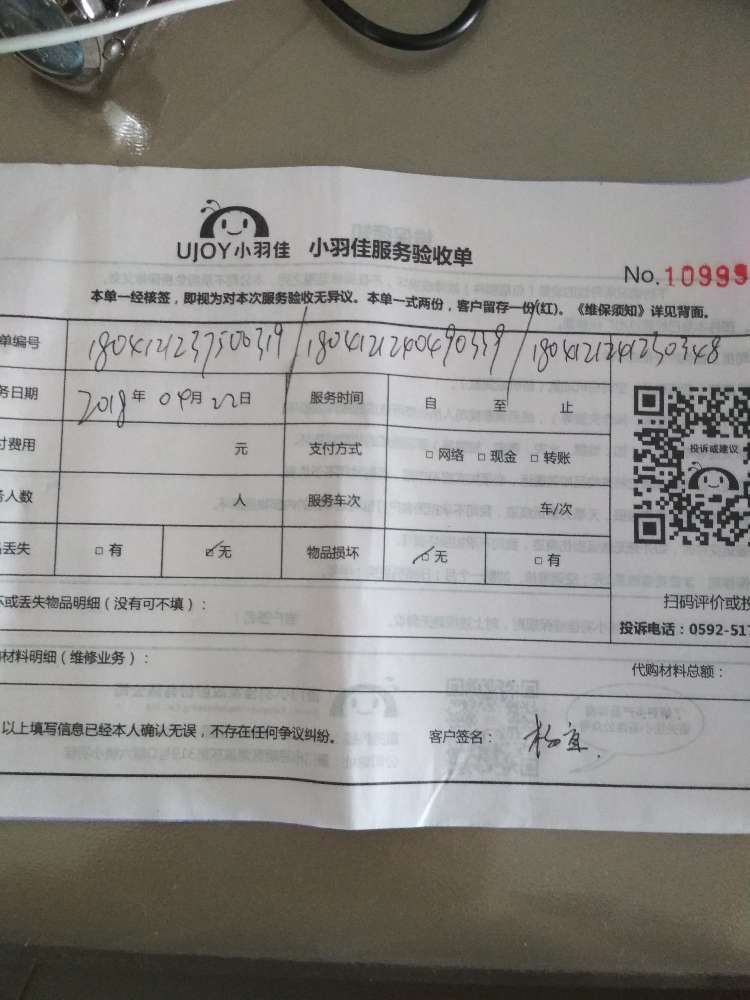 UJOY小羽佳 小羽佳服务验收单
No.10999
本单一经核签，即视为对本次服务验收无异议。本单一式两份，客户留存一份(红)。《维保须知》详见背面。
单编号 1804121237500319/1804121240490339/1804121241230348
务日期 2018年 04月 22日 服务时间 自 至 止
付费用 元 支付方式 □网络 □现金 □转账
务人数 人 服务车次 车/次
品丢失 □有 ☑无 物品损坏 ☑无 □有
投诉或建议
坏或丢失物品明细（没有可不填）：
扫码评价或投
投诉电话：0592-517
购材料明细（维修业务）：
代购材料总额：
以上填写信息已经本人确认无误，不存在任何争议纠纷。 客户签名：